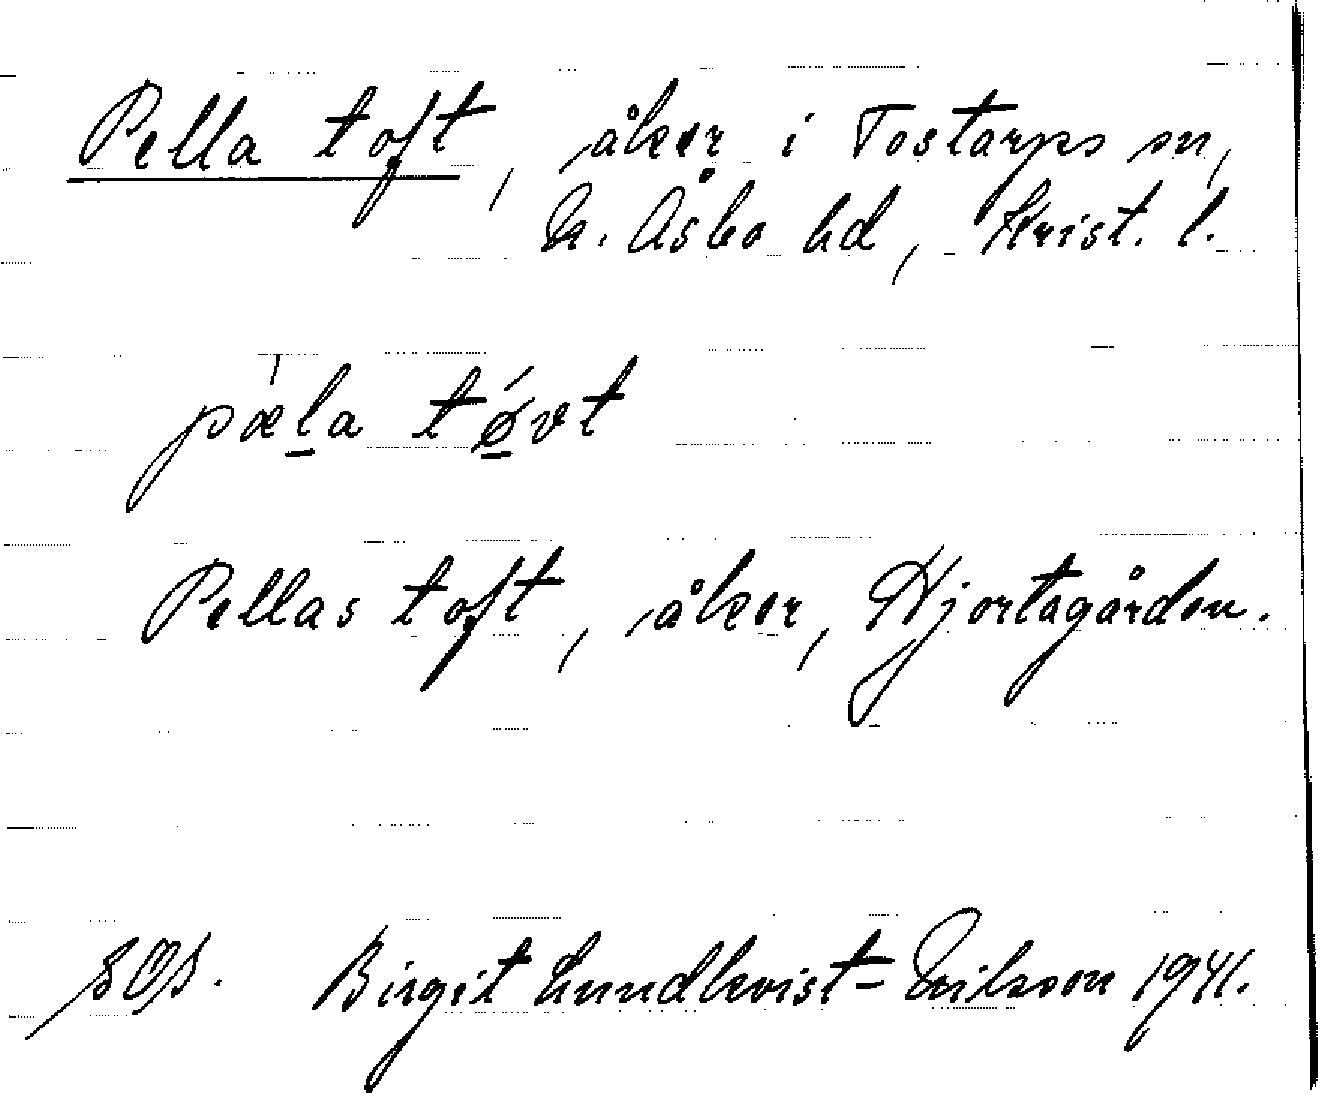 Pella toft, åker i Tostarps sn,
N. Åsbo hd, Krist. l.
pæla tøvt
Pellas toft, åker, Hjortagården.
Birgit Lundkvist-Nilsson 1941.